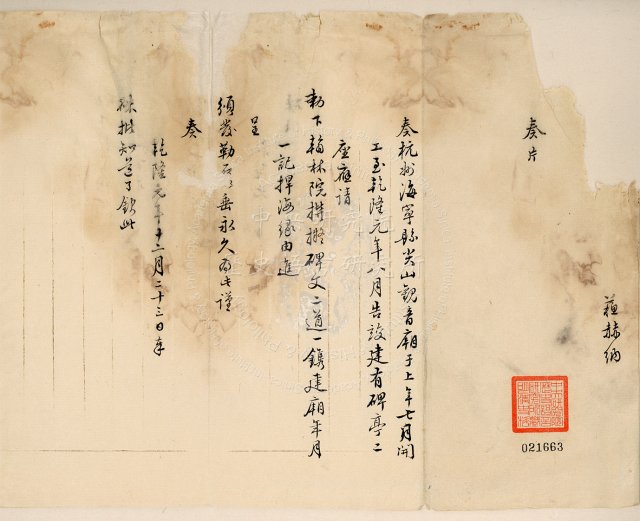 蘊赫納
奏片
奏杭州海寧縣尖山觀音廟于上年七月開
工至乾隆元年八月告竣建有碑亭二
座應請
勅下翰林院撰擬碑文二道一鐫建廟年月
一記捍海緣由進
呈
頒發勒石以垂永久為此謹
奏
乾隆元年十二月二十三日奉
硃批知道了欽此
021663